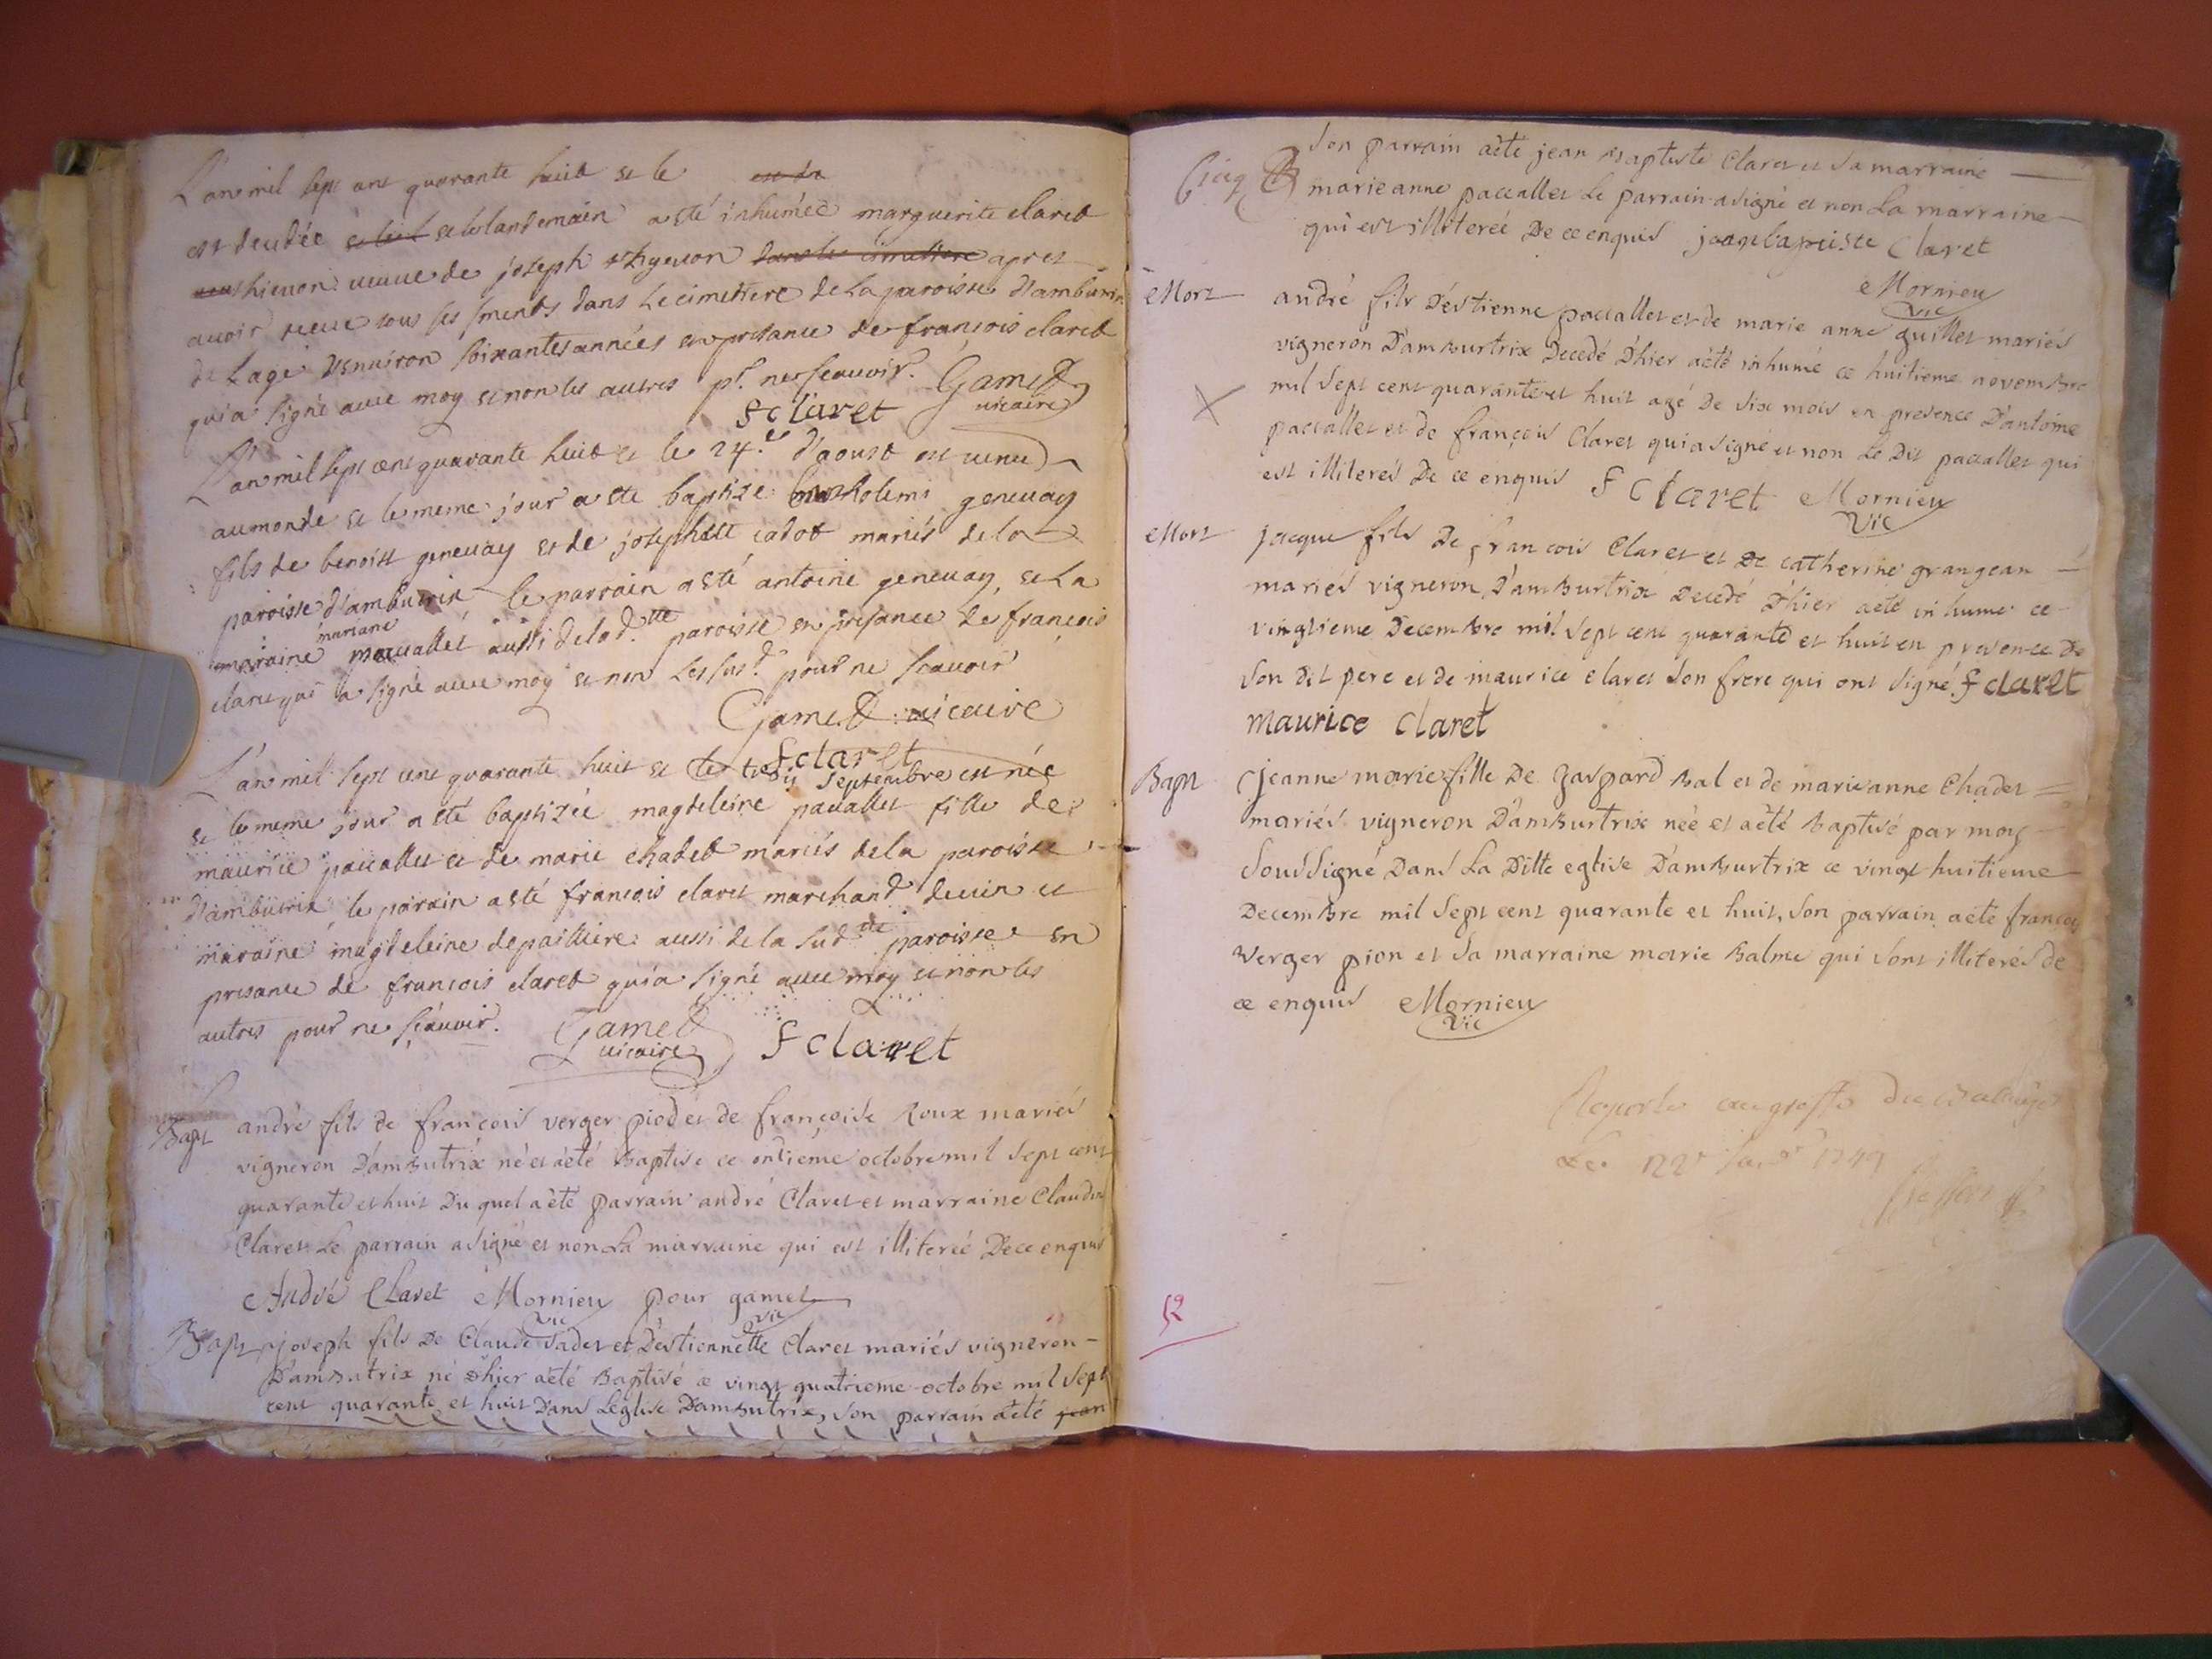 L'an mil sept cent quarante huit et le
est decedée et le landemain a esté inhumée marguerite claret
thievon veuve de joseph thyevon dans le cimettiere apres
avoir receue tous ses sments dans le cimetiere de la paroisse d'ambutrix
de l'age d'environ soixantes années en presance de françois claret
qui a signé avec moy et non les autres pr. ne scauoir. Gamet
F claret vicaire
L'an mil sept cens quarante huit et le 24.e d'aoust est venu
au monde et le meme jour a esté baptize bartholemi genevay
fils de benoist genevay et de josephete cadot mariés de la
paroisse d'ambutrix le parrain a esté antoine genevay, et la
mariane
maraine paccallet aussi de lad.tte paroisse en presance de françois
claret qui a signé avec moy et non les sus.d pour ne scauoir
Gamet vicaire
F claret
L'an mil sept cens quarante huit et le septembre est née
et le meme jour a esté baptizée magdeleine pacallet fille de
maurice paccallet et de marie chadet mariés de la paroisse
d'ambutrix le parain a esté françois claret marchand de vin et
maraine magdeleine depailliere aussi de la sud.tte paroisse en
presance de françois claret qui a signé avec moy et non les
autres pour ne scauoir. Gamet F claret
vicaire
Bapt andré fils de françois verger piod et de françoise Roux mariés
vigneron D'ambutrix né et aèté Baptisé ce onzième octobre mil sept cent
quarante et huit Du quel aèté parrain andré Claret et marraine Claudine
Claret Le parrain a signé et non La marraine qui est illiterée De ce enquis
André Claret Mornieu pour gamet
Vic vic
Bapt joseph fils De Claude Sadet et D'estiennette Claret mariés vigneron
D'ambutrix né d'hier aèté Baptisé ce vingt quatrieme octobre mil sept
cent quarante et huit Dans L'eglise D'ambutrix, son parrain aèté jean
son parrain aèté jean Baptiste Claret et sa marraine
marie anne paccallet Le parrain a signé et non La marraine
qui est illiterée De ce enquis jean bapciste Claret
Mornieu
Vic
Mort andré fils D'estienne paccallet et de marie anne guillet mariés
vigneron D'amburtrix Decedé D'hier aèté inhumé ce huitieme novembre
mil sept cent quarante et huit agé De six mois en presence D'antoine
paccallet et de françois Claret qui a signé et non Le Dit paccallet qui
est illiterés De ce enquis F Claret Mornieu
Vic
Mort jacque fils De françois Claret et De catherine grangean
mariés vigneron D'amburtrix Decedé D'hier aeté inhumé ce
vingtieme Decembre mil sept cent quarante et huit en presence De
son Dit pere et de maurice claret son frere qui ont signé F claret
maurice claret
Bapt jeanne marie fille De gaspard Bal et de marie anne Chadet
mariés vigneron D'amburtrix née et aèté Baptisé par moy
soussigné Dans La Ditte eglise D'amburtrix ce vingt huitieme
Decembre mil sept cent quarante et huit, son parrain aèté françois
verger pion et sa marraine marie Balme qui sont illiterés de
ce enquis Mornieu
Vic
au greffe du
Le 1749
52